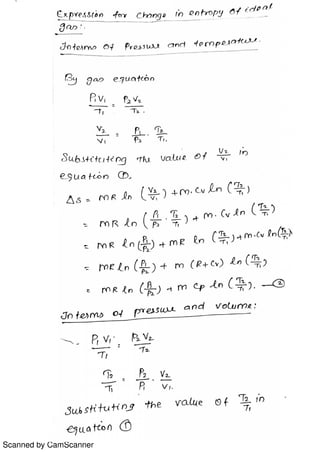 Expression for change in entropy of ideal
gas:
In terms of Pressure and temperature.
By gas equation
P₁V₁/T₁ = P₂V₂/T₂.
V₂/V₁ = P₁/P₂ . T₂/T₁
Substituting the value of V₂/V₁ in
equation ①,
Δs = mR ln (V₂/V₁) + m. Cv ln (T₂/T₁)
= mR ln (P₁/P₂ . T₂/T₁) + m. Cv ln (T₂/T₁)
= mR ln (P₁/P₂) + mR ln (T₂/T₁) + m. Cv ln (T₂/T₁)
= mR ln (P₁/P₂) + m (R+Cv) ln (T₂/T₁)
= mR ln (P₁/P₂) + m Cp ln (T₂/T₁). —②
In terms of pressure and volume:
P₁V₁/T₁ = P₂V₂/T₂
T₂/T₁ = P₂/P₁ . V₂/V₁.
Substituting the value of T₂/T₁ in
equation ①
Scanned by CamScanner